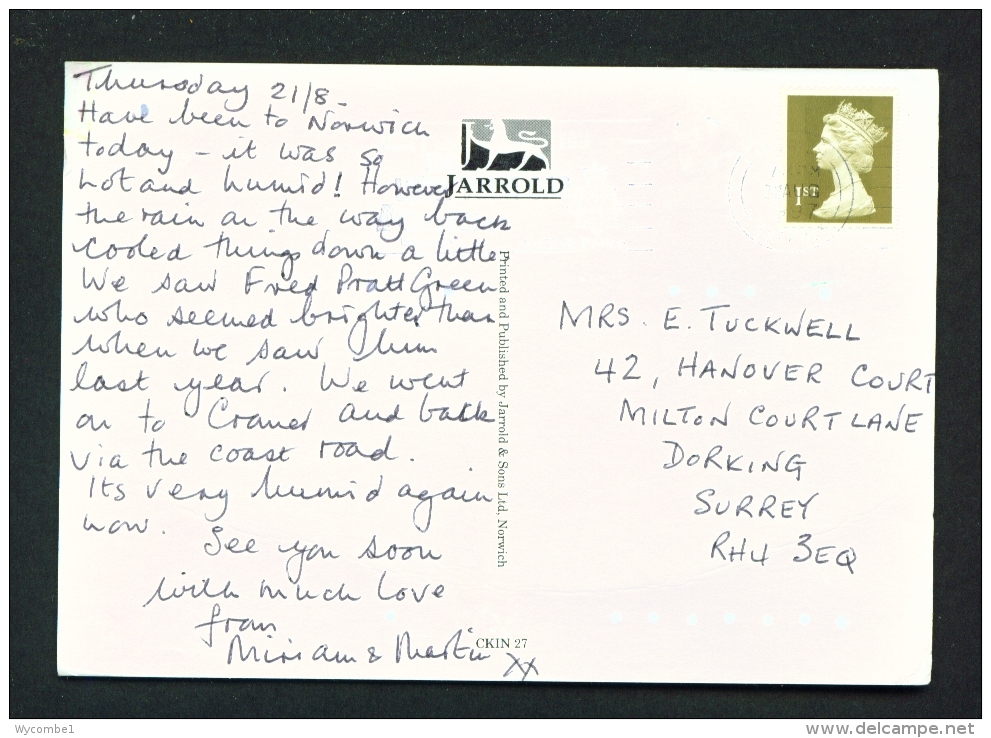 Thursday 21/8.
Have been to Norwich
today - it was so
hot and humid! However
the rain on the way back
cooled things down a little
We saw Fred Pratt Green
who seemed brighter than
when we saw him
last year. We went
on to Cromer and back
via the coast road.
Its very humid again
now.
See you soon
with much love
from
Miriam & Martin xx
JARROLD
Printed and Published by Jarrold & Sons Ltd, Norwich
CKIN 27
1ST
MRS. E. TUCKWELL
42, HANOVER COURT
MILTON COURT LANE
DORKING
SURREY
RH4 3EQ
Wycombe1
www.delcampe.net